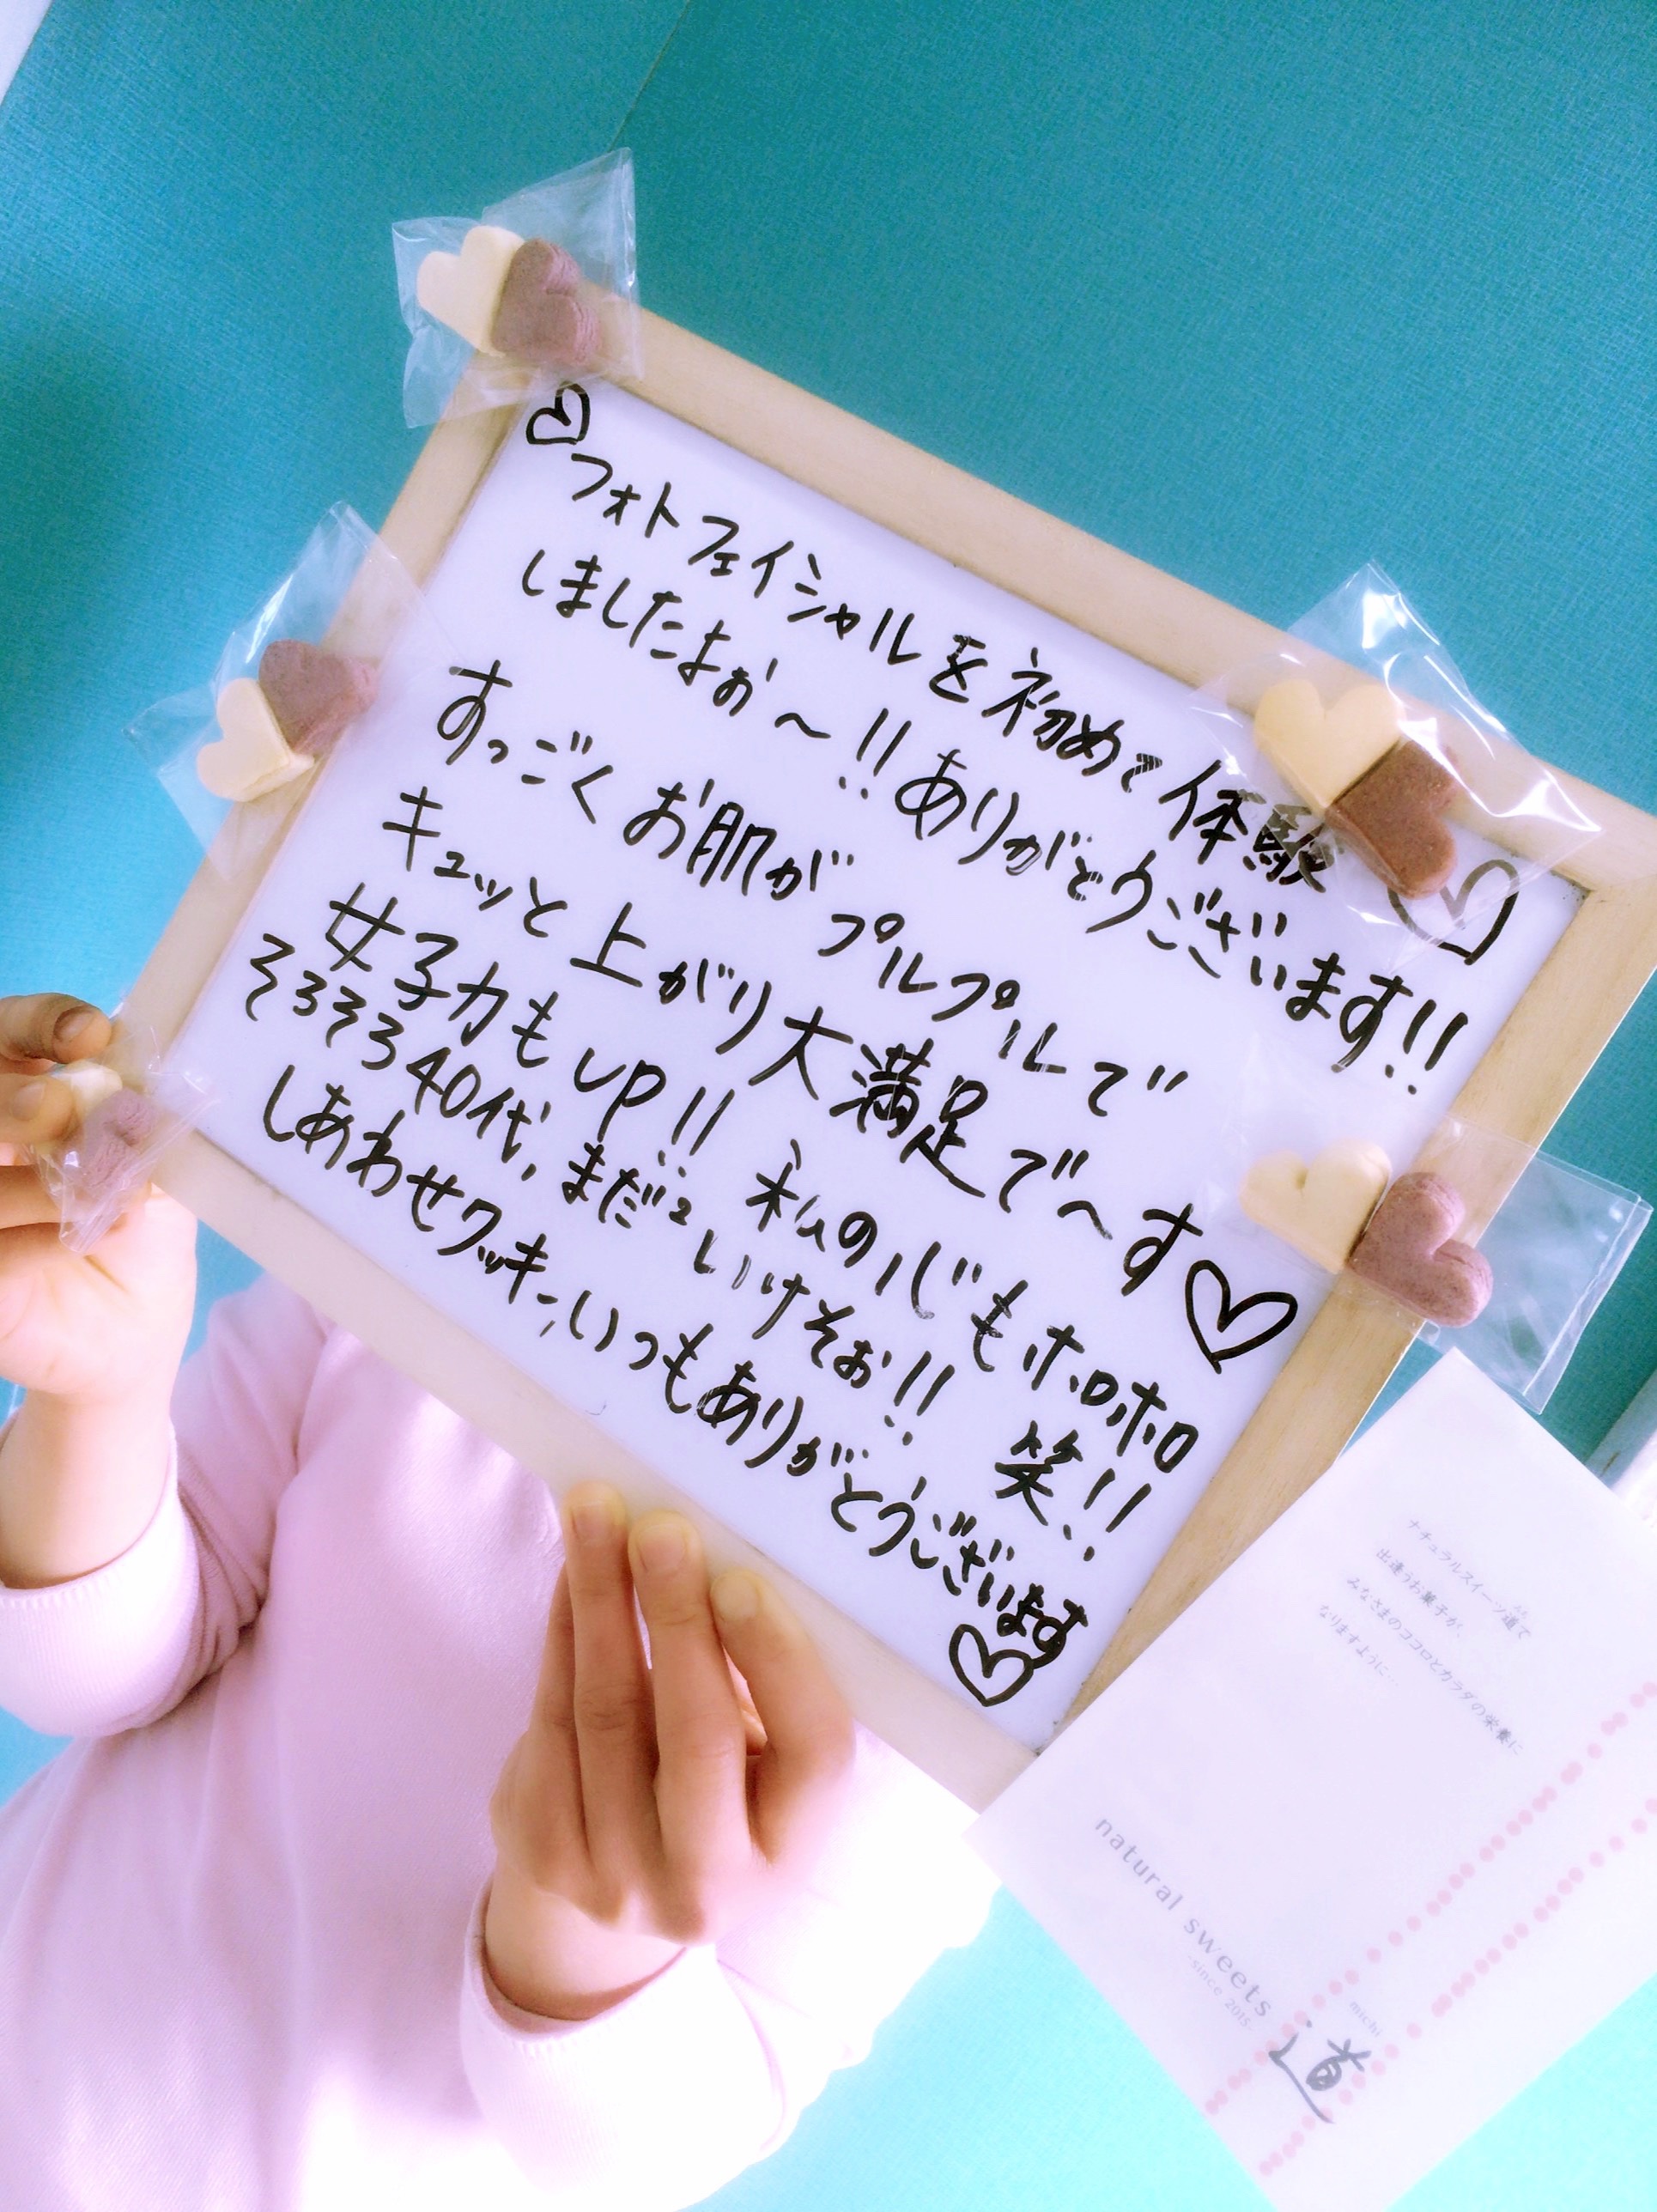 ♡フォトフェイシャルを初めて体験♡
しましたよぉ〜!!ありがとうございます!!
すっごくお肌がプルプルで
キュッと上がり大満足で〜す♡
女子力もUP!! 私の心もホロホロ
そろそろ40代、まだ2いけそぉ!! 笑!!
しあわせクッキー、いつもありがとうございます♡
ナチュラルスイーツ道で
出逢うお菓子が、
みなさまのココロとカラダの栄養に
なりますように…
natural sweets
since 2015.
michi
道